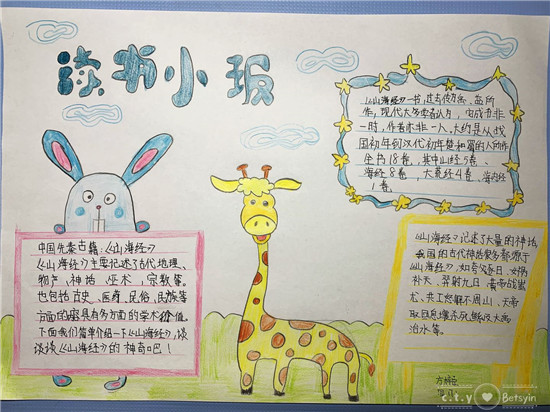 读书小报
《山海经》一书,过去认为
作,现代大多学者认为,内成书非
一时,作者亦非一人,大约是从战
国初年到汉代初年楚和蜀的人所作
全书18卷,其中山经5卷、
海经8卷,大荒经4卷、海内经
1卷。
中国先秦古籍:《山海经》
《山海经》主要记述了古代地理、
物产,神话,巫术,宗教等。
也包括古史、医药、民俗、民族等
方面的 具有多方面的学术价值。
下面我们简单介绍一下《山海经》,谈
谈谈《山海经》的神奇吧!
《山海经》记述了大量的神话
我国的古代神话 多都源于
《山海经》,如夸父逐日、女娲
补天、羿射九日、黄帝战蚩
尤、共工怒触不周山、大帝
取息壤 及大禹
治水等。
方
c.t.y Betsyin